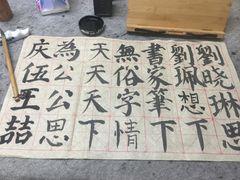 劉曉琳思
劉珮想下
書家筆下
無俗字情
天天天下
為公公思
庆伍王喆